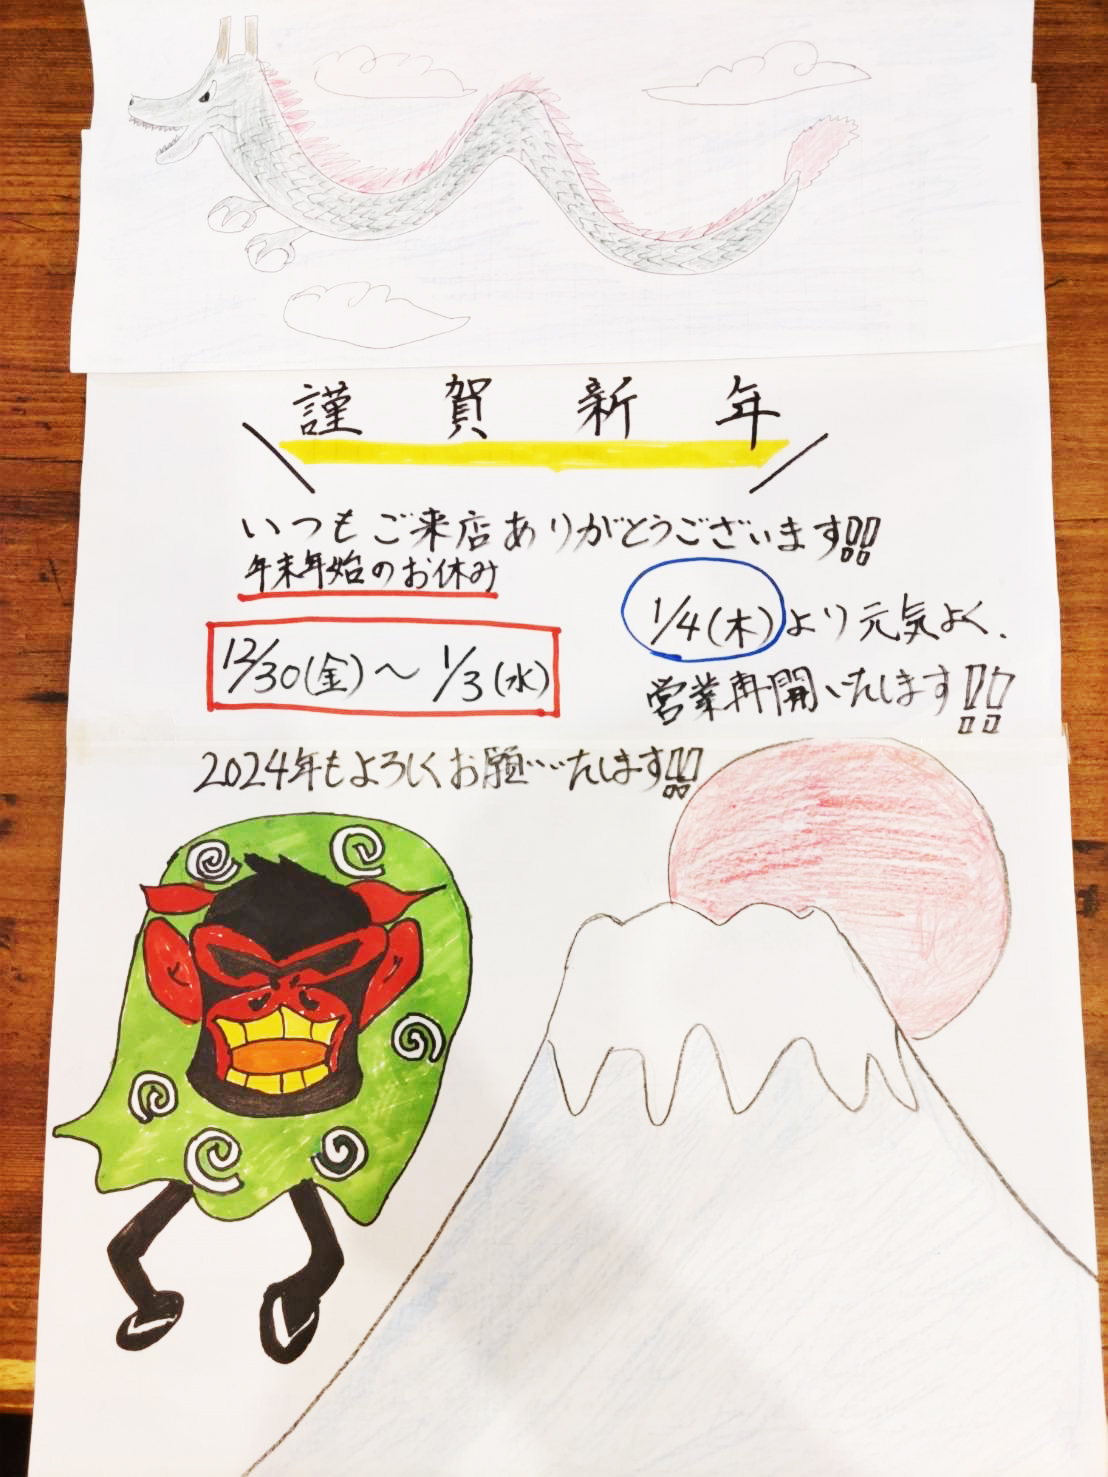 謹賀新年
いつもご来店ありがとうございます!!
年末年始のお休み
12/30(金)～1/3(水)
1/4(木)より元気よく、
営業再開いたします!!
2024年もよろしくお願いいたします!!